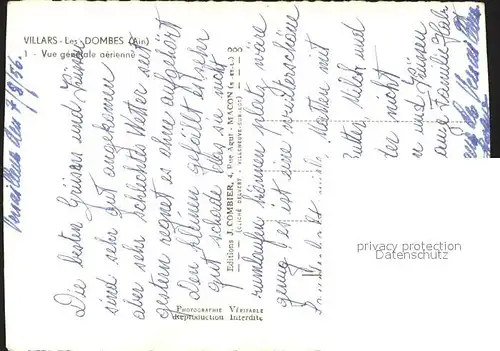 VILLARS - Les DOMBES (Ain)
1 - Vue générale aérienne
Versailleux den 7/8/56.
Die besten Grüssen und Küsse
sind sehr gut angekommen
aber sehr schlechtes Wetter seit
gestern regnet es ohne aufgehört
den kleinen gefällt es sehr
gut schade dass sie nicht
rumlaufen können platz wäre
genug es ist eine wunderschöne
mit
Butter, Milch und
nicht
und Grüssen
Familie
Editions J. COMBIER, 4, Rue Agut - MACON (S.-et-L.)
CLICHÉ DELVERT - VILLENEUVE-SUR-LOT
PHOTOGRAPHIE VÉRITABLE
Reproduction Interdite
privacy protection
Datenschutz